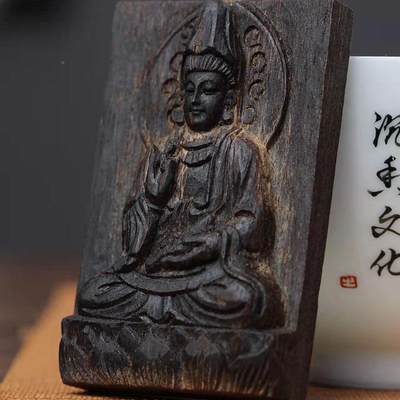 沉香文化